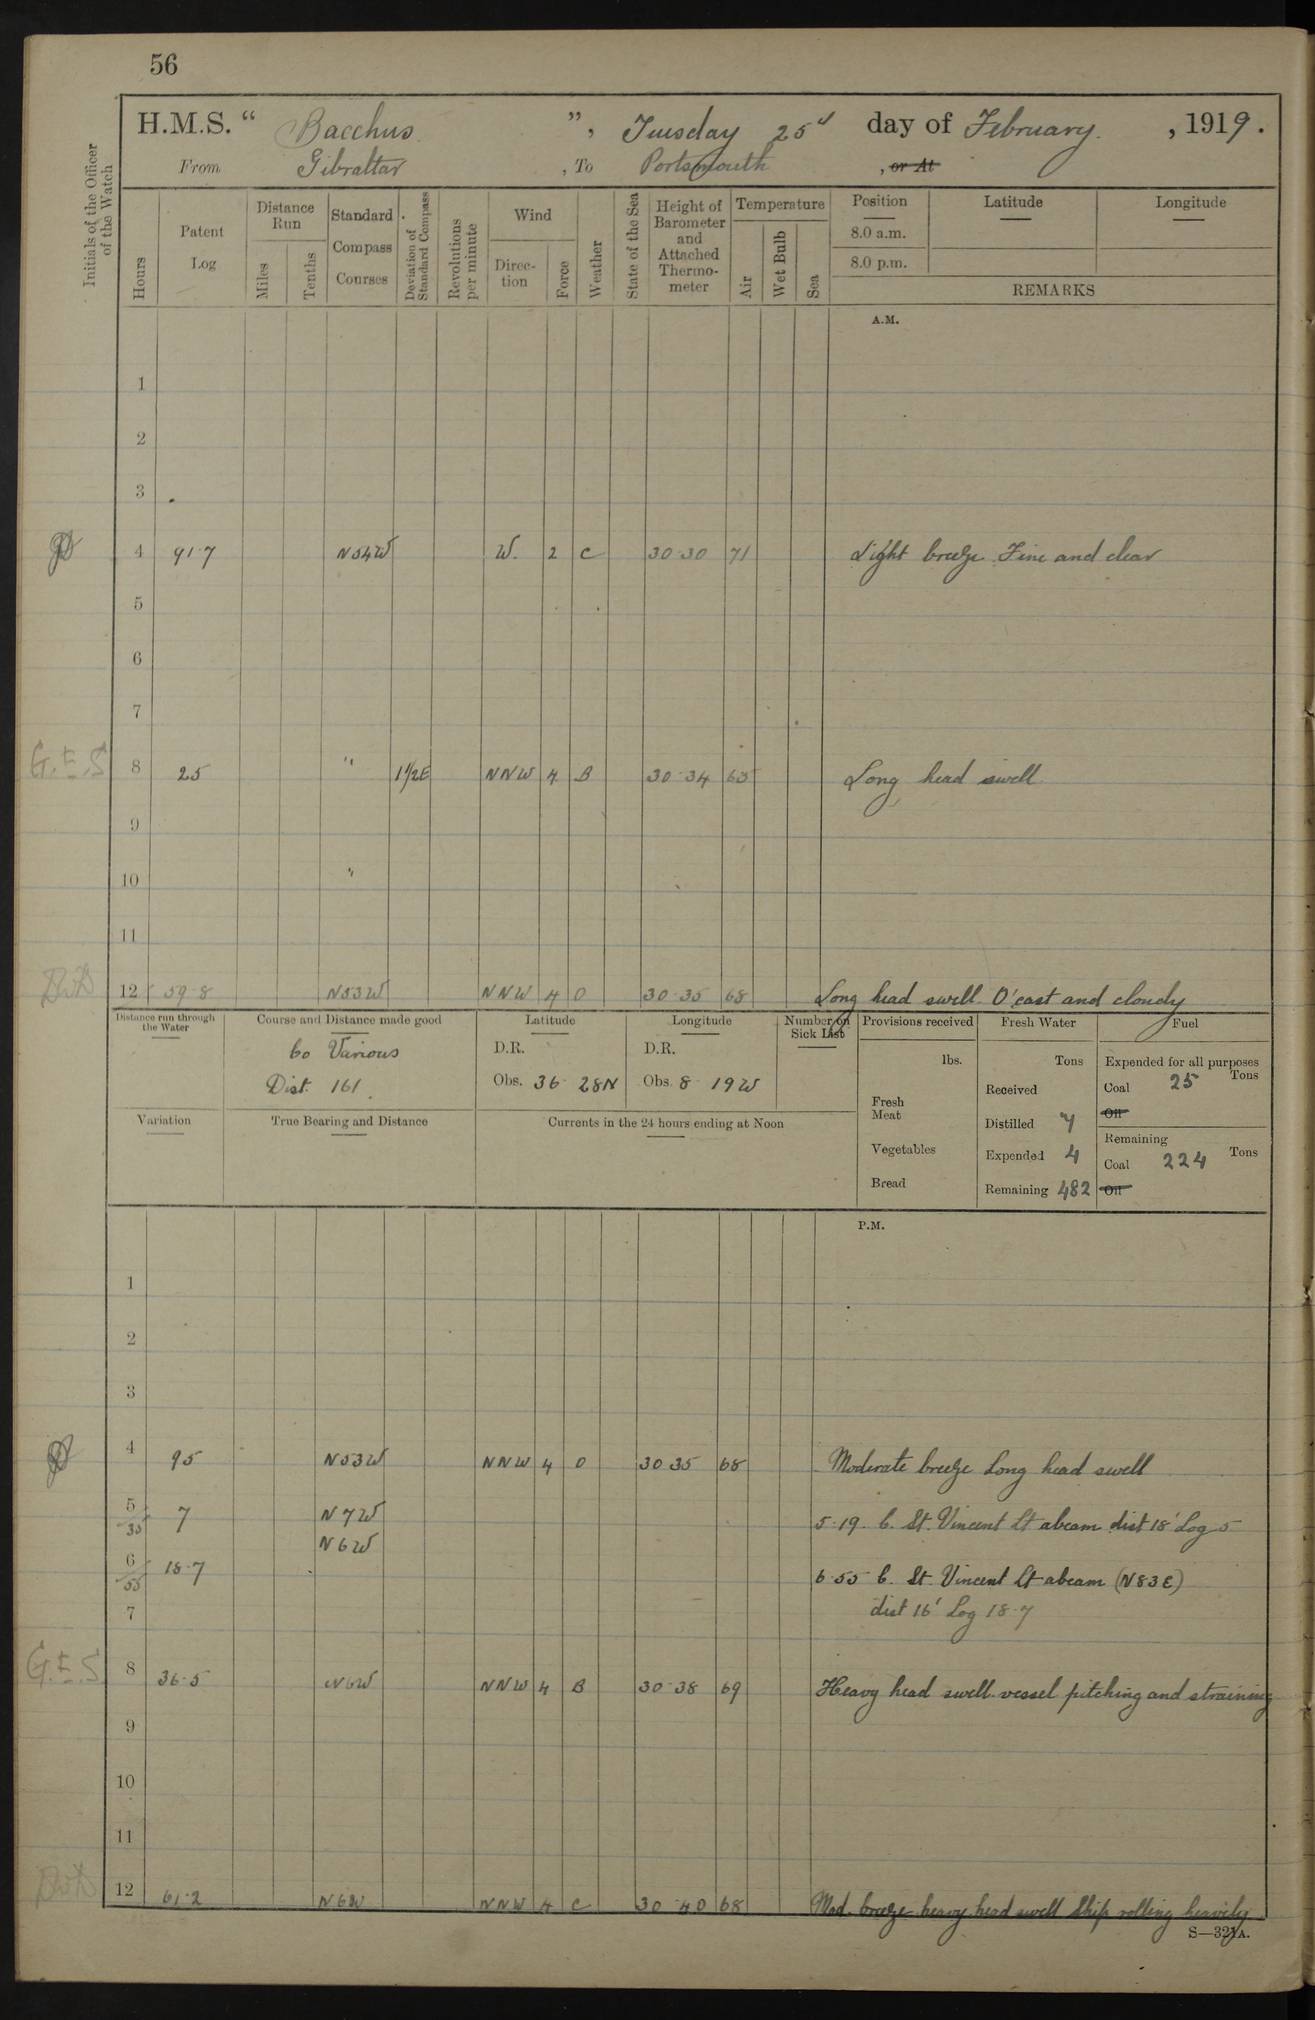 56
H.M.S. “ Bacchus ”, Tuesday 25th day of February, 1919.
From Gibraltar, To Portsmouth, or At
Initials of the Officer of the Watch
Hours
Patent Log
Distance Run
Miles
Tenths
Standard Compass Courses
Deviation of Standard Compass
Revolutions per minute
Wind
Direction
Force
Weather
State of the Sea
Height of Barometer and Attached Thermometer
Temperature
Air
Wet Bulb
Sea
Position
8.0 a.m.
8.0 p.m.
Latitude
Longitude
REMARKS
A.M.
1
2
3
4 91·7 N54W W. 2 C 30·30 71 Light breeze Fine and clear
5
6
7
G.E.S 8 25 " 1½E NNW 4 B 30·34 65 Long head swell
9
10 "
11
12 59·8 N53W NNW 4 O 30·35 68 Long head swell O'cast and cloudy
Distance run through the Water
Course and Distance made good
Co Various
Dist. 161.
Latitude
D.R.
Obs. 36 28N
Longitude
D.R.
Obs. 8 19W
Number on Sick List
Provisions received
lbs.
Fresh Meat
Vegetables
Bread
Fresh Water
Tons
Received
Distilled 7
Expended 4
Remaining 482
Fuel
Expended for all purposes
Tons
Coal 25
Oil
Remaining
Coal 224 Tons
Oil
Variation
True Bearing and Distance
Currents in the 24 hours ending at Noon
P.M.
1
2
3
4 95 N53W NNW 4 O 30 35 68 Moderate breeze Long head swell
5/35 7 N7W 5·19 C. St. Vincent Lt abeam dist 18' Log 5
N6W
6/55 18·7 6·55 C. St. Vincent Lt abeam (N83E)
7 dist 16' Log 18·7
G.E.S. 8 36·5 N6W NNW 4 B 30·38 69 Heavy head swell vessel pitching and straining
9
10
11
12 61·2 N6W NNW 4 C 30 40 68 Mod. breeze heavy head swell Ship rolling heavily
S—321A.